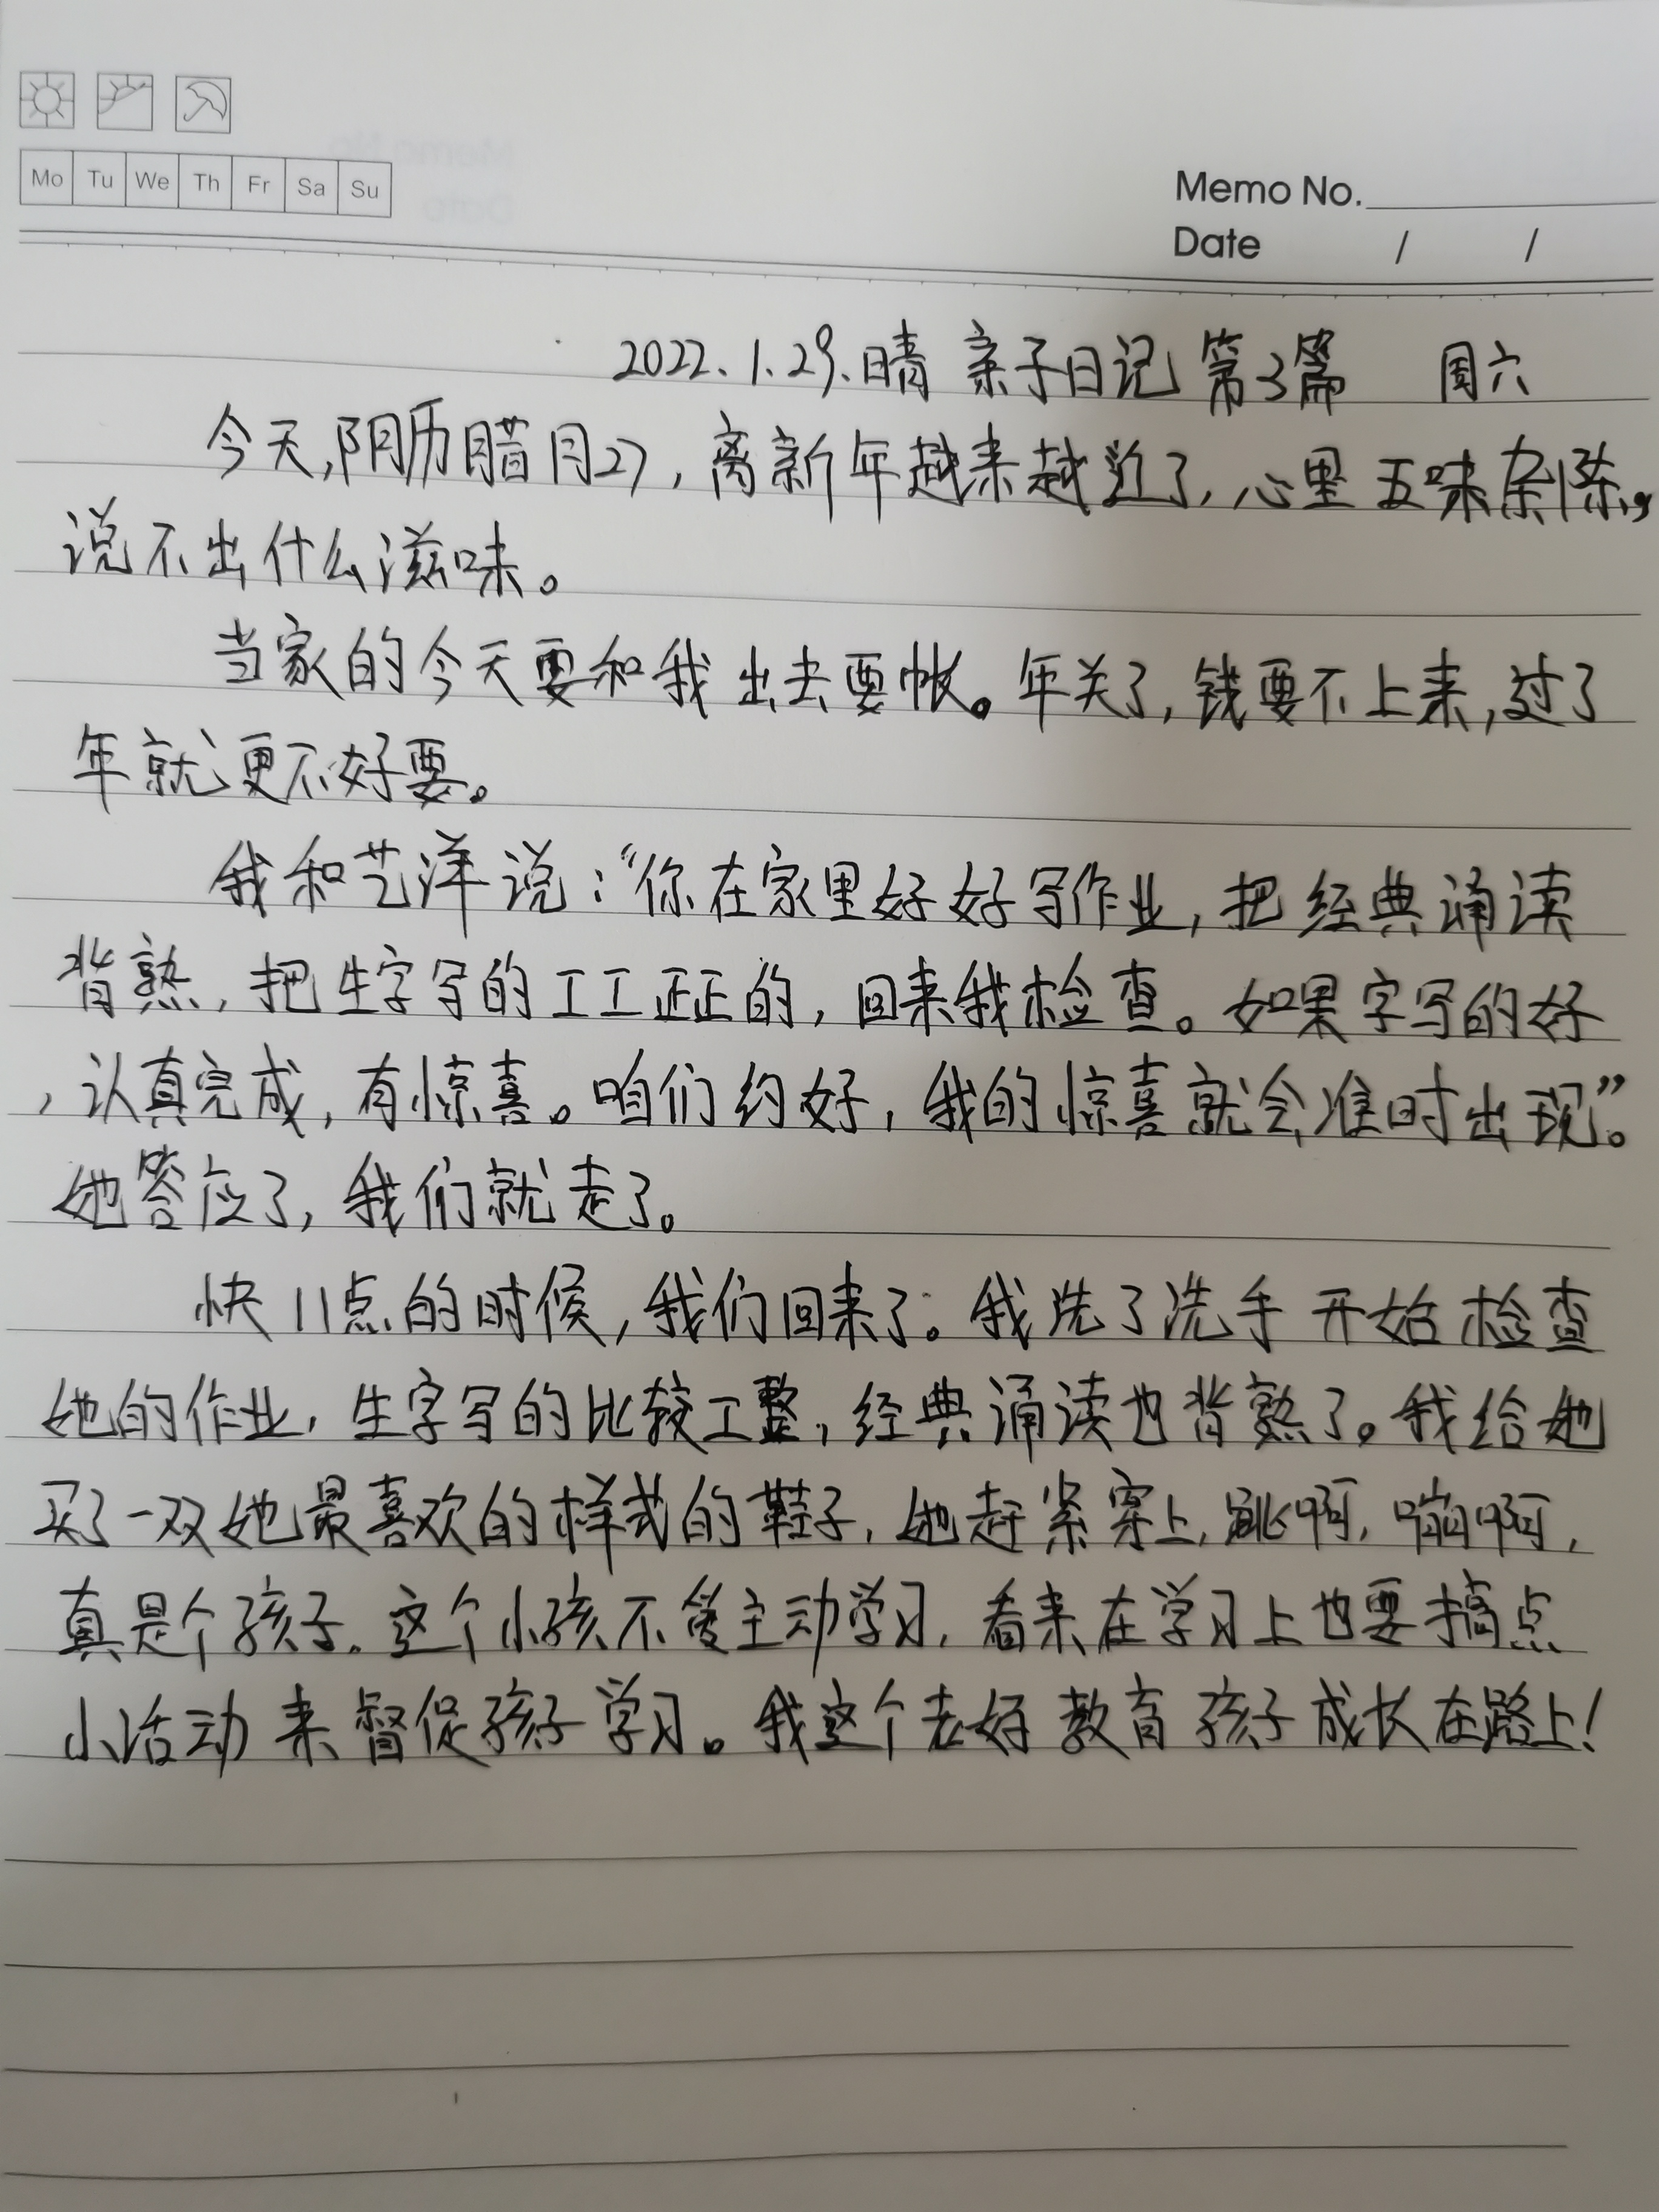 Mo Tu We Th Fr Sa Su
Memo No.
Date / /
2022、1.29、晴 亲子日记 第3篇 周六
今天,阴历腊月27,离新年越来越近了,心里五味杂陈,
说不出什么滋味。
当家的今天要和我出去要帐。年关了,钱要不上来,过了
年就更不好要。
我和艺洋说:“你在家里好好写作业,把经典诵读
背熟,把生字写的工工正正的,回来我检查。如果字写的好
,认真完成,有惊喜。咱们约好,我的惊喜就会准时出现”。
她答应了,我们就走了。
快11点的时候,我们回来了。我洗了洗手开始检查
她的作业,生字写的比较工整,经典诵读也背熟了。我给她
买了一双她最喜欢的样式的鞋子,她赶紧穿上,跳啊,嘣啊,
真是个孩子。这个小孩不爱主动学习,看来在学习上也要搞点
小活动来督促孩子学习。我这个去好教育孩子成长在路上!